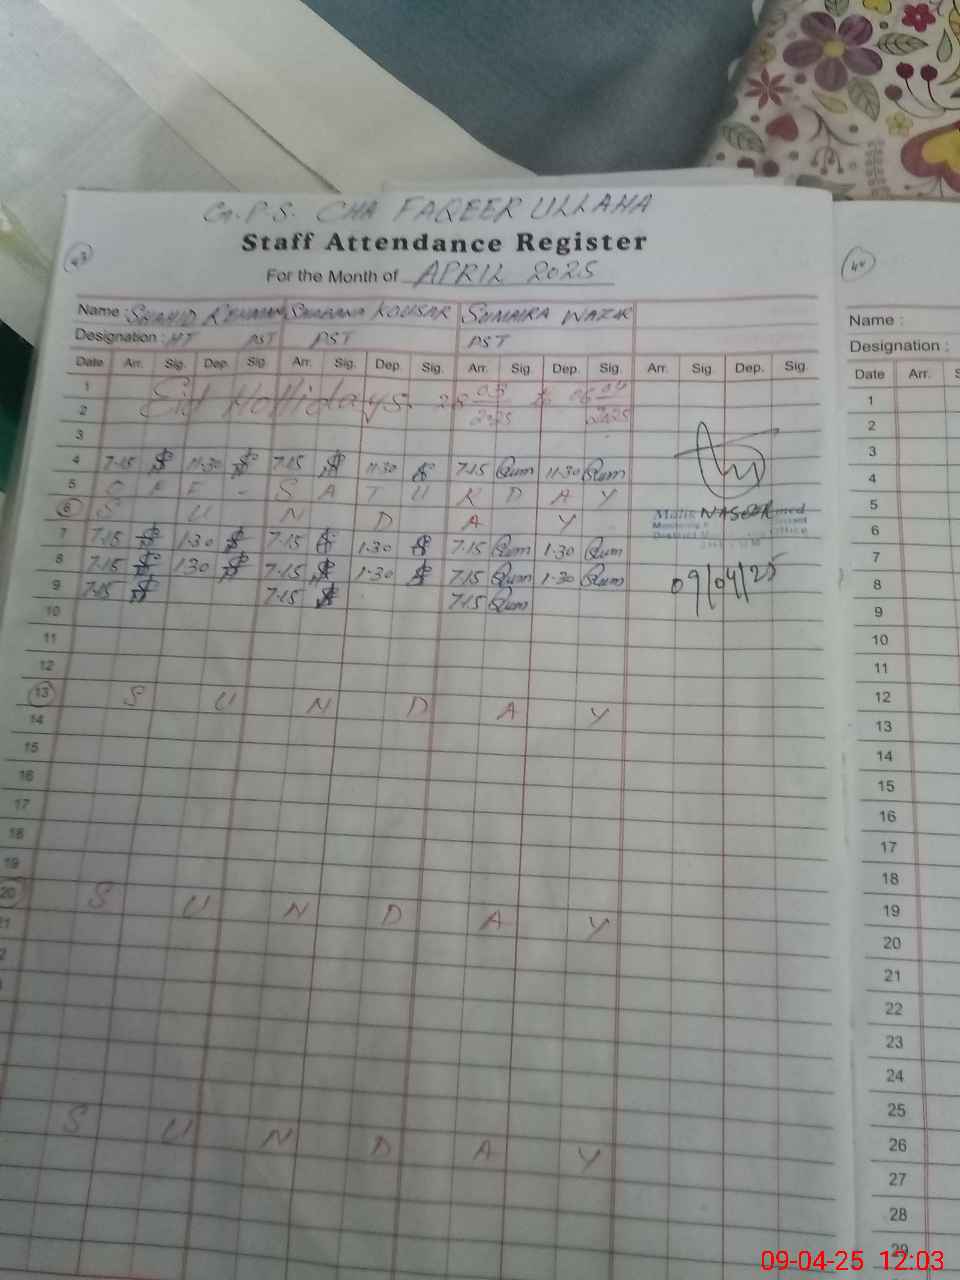 G.P.S. CHA FAQEER ULLAHA
Staff Attendance Register
43
For the Month of APRIL 2025
Name : SHAHID REHMAN SHABANA KOUSAR SUMAIRA
Designation : HT PST PST PST
Date Arr. Sig. Dep. Sig. Arr. Sig. Dep. Sig. Arr. Sig. Dep. Sig. Arr. Sig. Dep. Sig.
1 Eid Hollidays. 28 03 2025 to 06 04 2025
2
3
4 7.15 11.30 7.15 11.30 7.15 11.30
5 OFF - SATURDAY
6 SUNDAY
7 7.15 1.30 7.15 1.30 7.15 1.30
8 7.15 1.30 7.15 1.30 7.15 1.30
9 7.15 7.15 7.15
10
Malik NASEER
09/04/25
11
12
13 SUNDAY
14
15
16
17
18
19
20 SUNDAY
21
SUNDAY
44
Name :
Designation :
Date Arr.
1
2
3
4
5
6
7
8
9
10
11
12
13
14
15
16
17
18
19
20
21
22
23
24
25
26
27
28
29
09-04-25 12:03